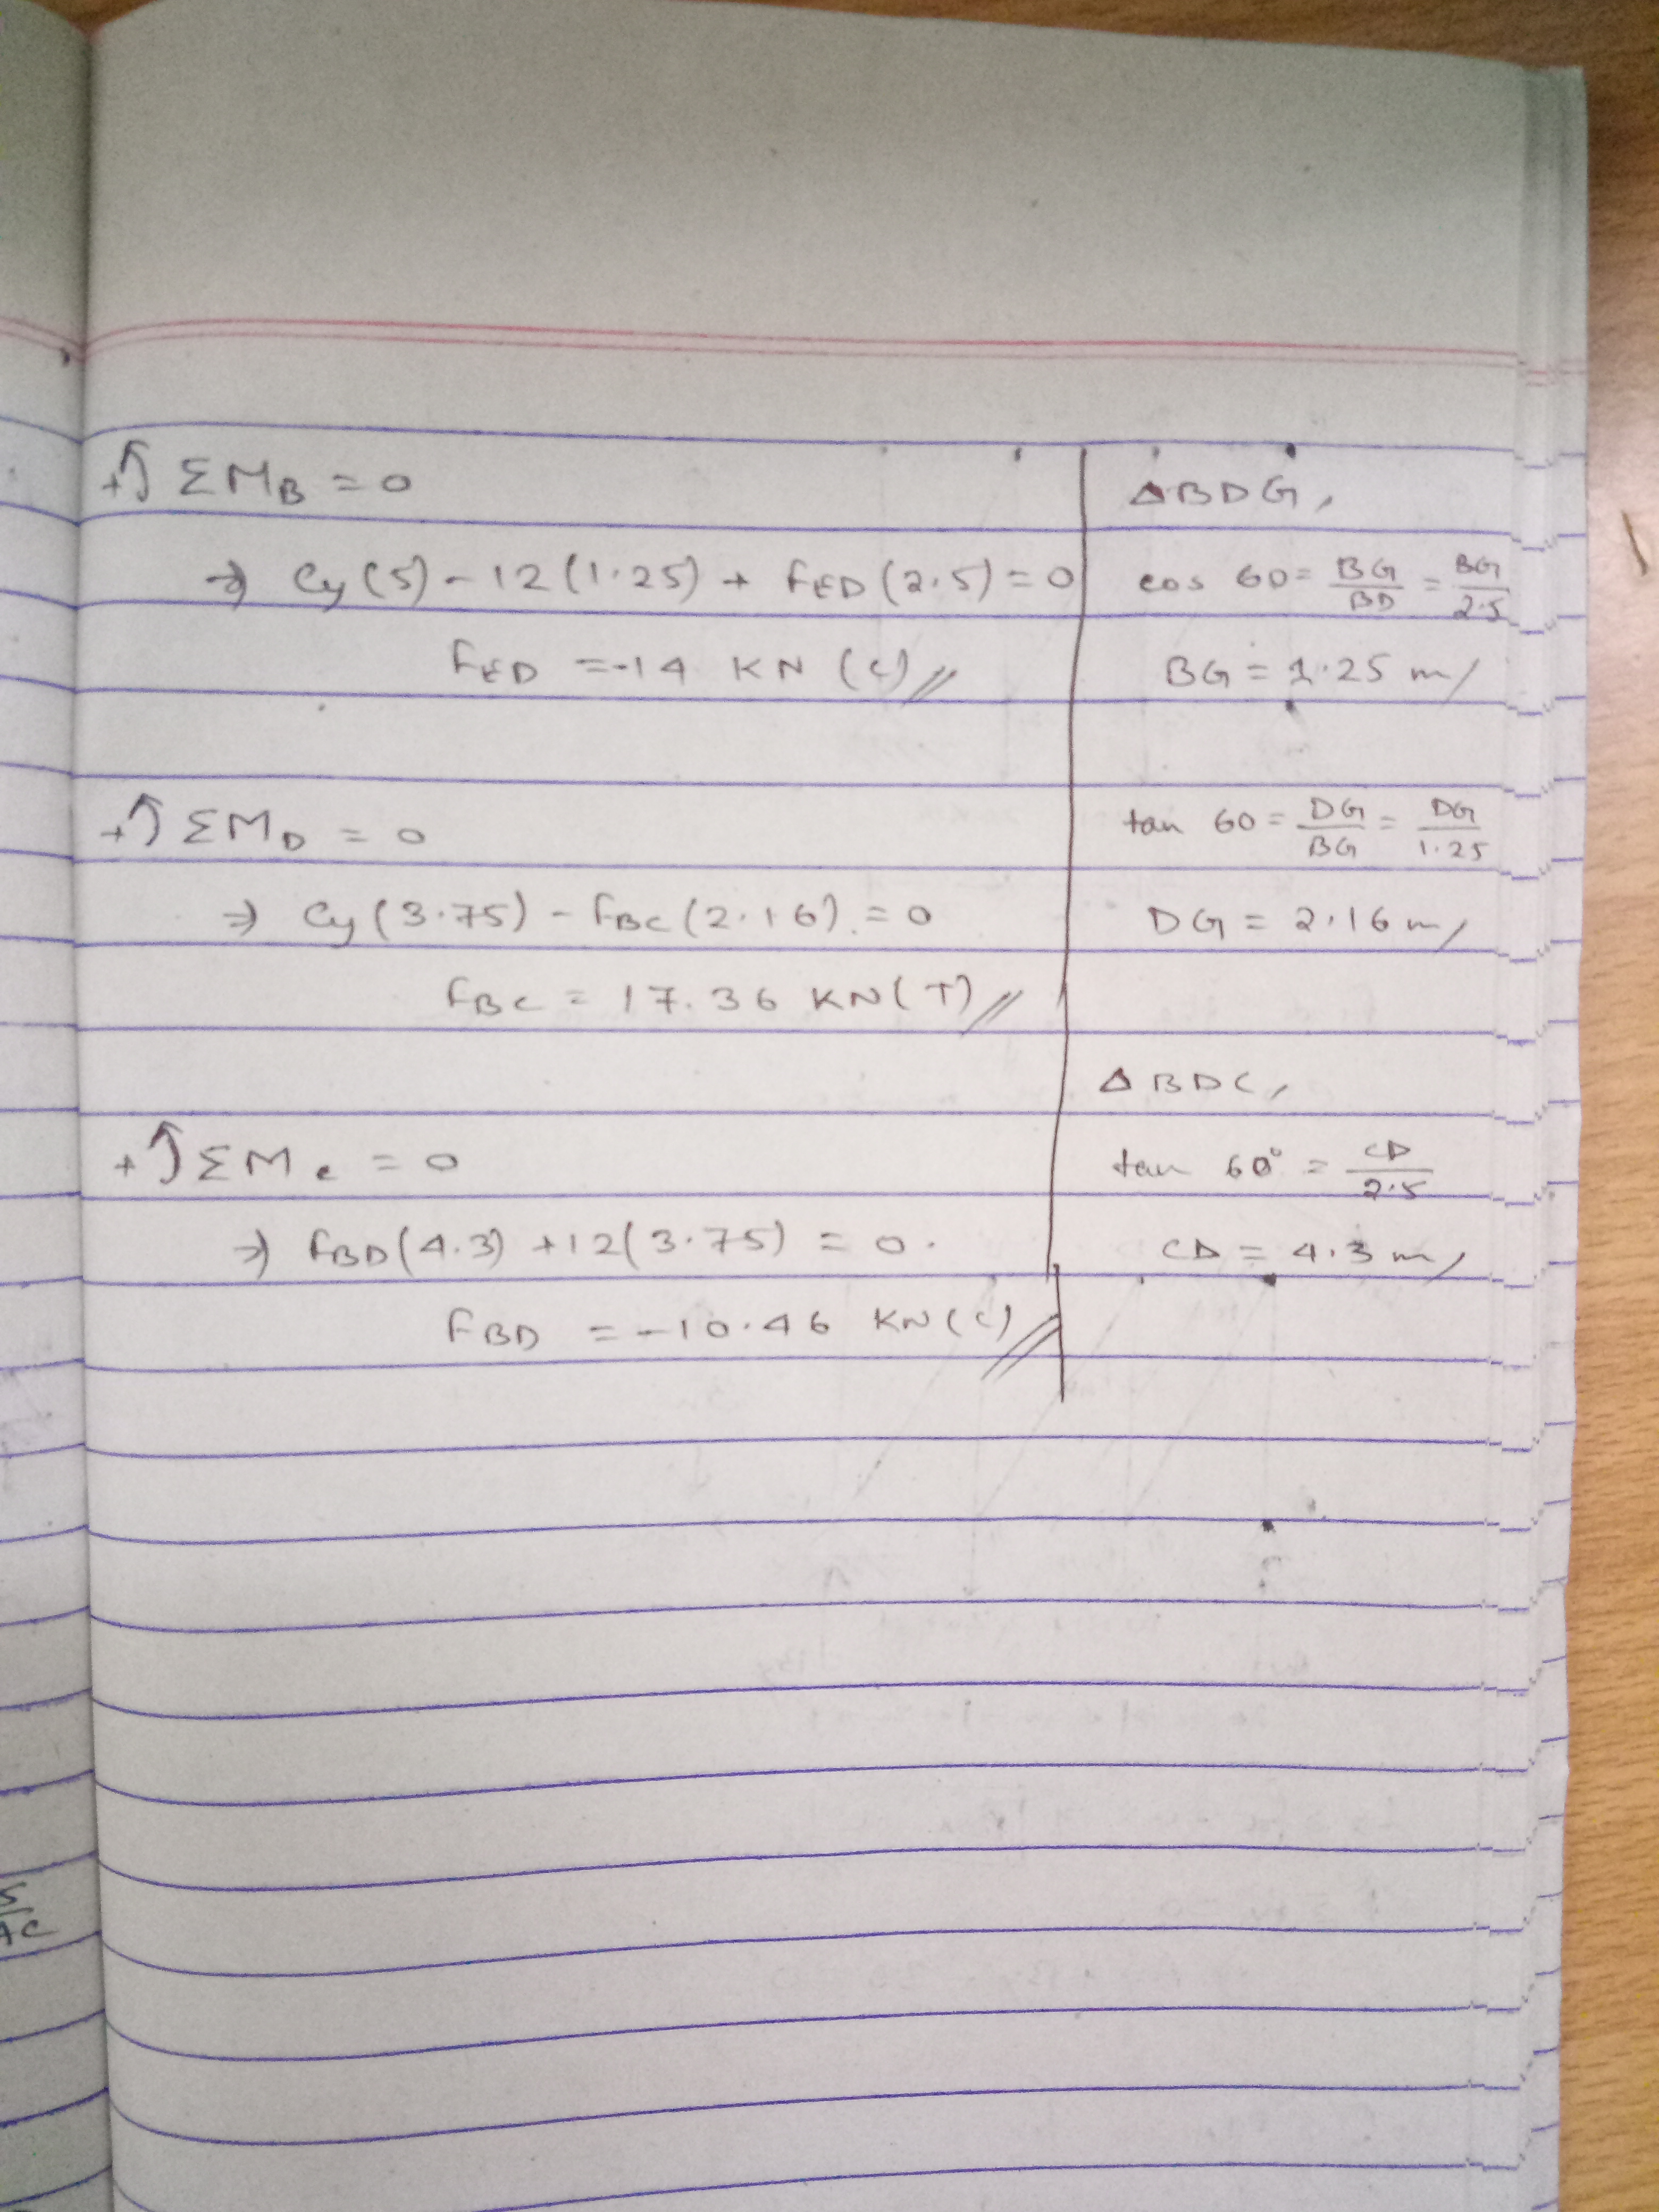 +↺ ΣM_B = 0
⇒ Cy(5) - 12(1.25) + F_ED(2.5) = 0
F_ED = -14 KN (C)//
+↺ ΣM_D = 0
⇒ Cy(3.75) - F_BC(2.16) = 0
F_BC = 17.36 KN(T)//
+↺ ΣM_c = 0
⇒ F_BD(4.3) + 12(3.75) = 0.
F_BD = -10.46 KN(C)//
ΔBDG,
cos 60 = BG/BD = BG/2.5
BG = 1.25 m/
tan 60 = DG/BG = DG/1.25
DG = 2.16 m/
ΔBDC,
tan 60° = CD/2.5
CD = 4.3 m/